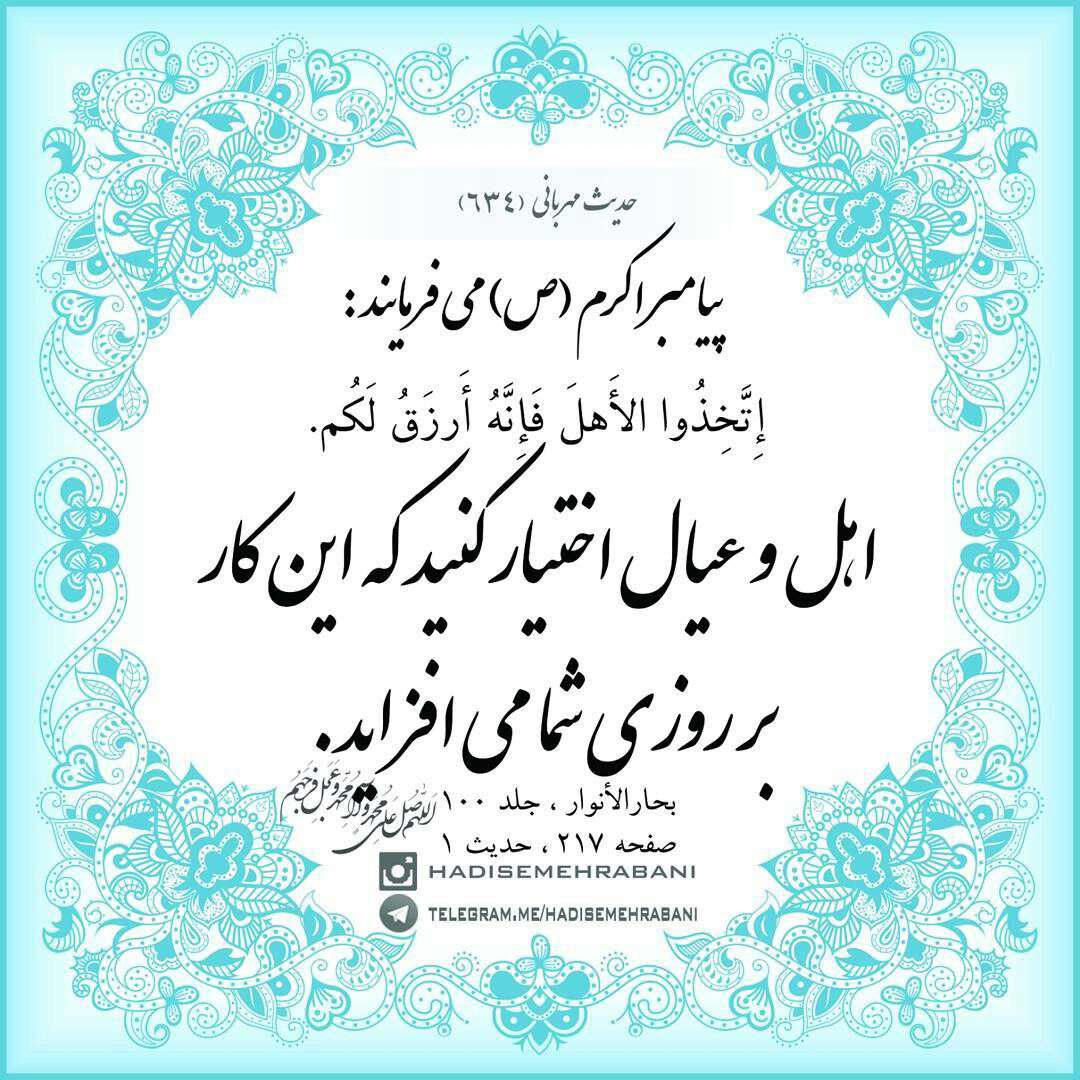 حدیث مهربانی (٦٣٤)
پیامبر اکرم (ص) می فرمایند:
إِتَّخِذُوا الأَهلَ فَإِنَّهُ أَرزَقُ لَكُم.
اهل و عیال اختیار کنید که این کار
بر روزی شما می افزاید.
بحارالأنوار ، جلد ١٠٠
اللهم صل علی محمد وآل محمد وعجل فرجهم
صفحه ٢١٧ ، حدیث ١
HADISEMEHRABANI
TELEGRAM.ME/HADISEMEHRABANI